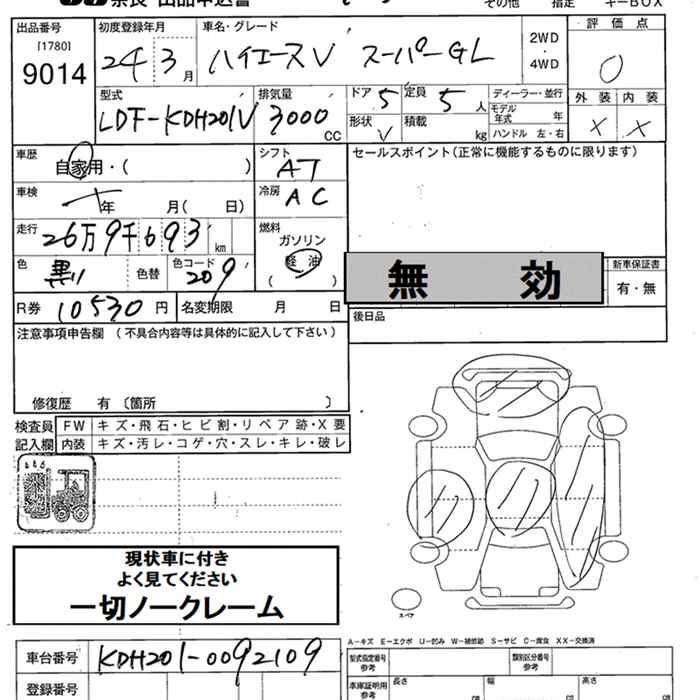 奈良・出品申込書
その他 指定 キーBOX
出品番号 初度登録年月 車名・グレード 評価点
[1780]
9014
24 3月 ハイエースV スーパーGL
2WD
・
4WD
型式 排気量 ドア 5 定員 5人 ディーラー・並行 外装 内装
LDF-KDH201V 3000 CC
形状 V 積載 kg
モデル年式 年
ハンドル 左・右
× ×
車歴 自家用・( )
シフト AT
セールスポイント(正常に機能するものに限ります)
車検 年 月( 日)
冷房 AC
走行 26万9千693km
燃料 ガソリン
軽油
( )
色 黒 色替 色コード 209
無 効
新車保証書
有・無
R券 10530円 名変期限 月 日
後日品
注意事項申告欄 (不具合内容等は具体的に記入して下さい)
修復歴 有〔箇所 〕
検査員記入欄
FW キズ・飛石・ヒビ割・リペア跡・X要
内装 キズ・汚レ・コゲ・穴・スレ・キレ・破レ
現状車に付き
よく見てください
一切ノークレーム
スペア
A-キズ E-エクボ U-凹み W-補修跡 S-サビ C-腐食 XX-交換済
車台番号 KDH201-0092109
登録番号
型式指定番号 参考
類別区分番号 参考
車庫証明用 参考 長さ 幅 高さ